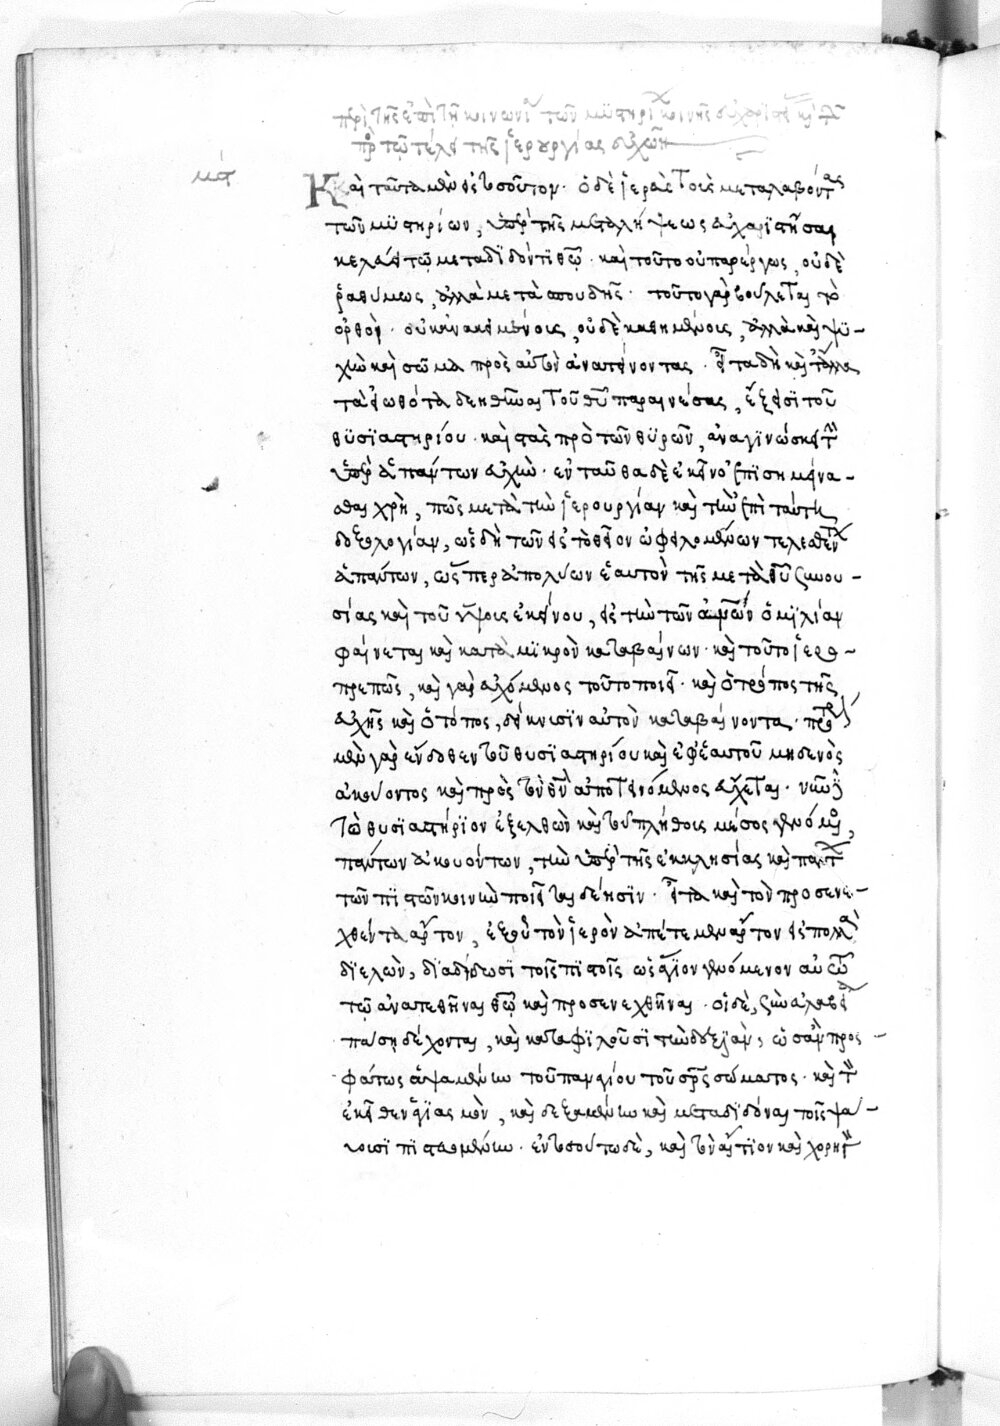 περὶ τῆς ἐπὶ τῇ κοινωνίᾳ τῶν μυστηρίων κοινῆς εὐχαριστίας καὶ τῶν
πρὸς τῷ τέλει τῆς ἱερουργίας εὐχῶν
μα
Καὶ ταῦτα μὲν εἰς τοσοῦτον· ὁ δὲ ἱερεὺς τοὺς μεταλαβόντας
τῶν μυστηρίων, ὑπὲρ τῆς μεταλήψεως εὐχαριστῆσαι
κελεύει τῷ μεταδιδόντι θεῷ· καὶ τοῦτο οὐ παρέργως, οὐδὲ
ῥαθύμως, ἀλλὰ μετὰ σπουδῆς· τοῦτο γὰρ βούλεται τὸ
ὀρθοί· οὐκ ἀνακειμένοις, οὐδὲ καθημένοις, ἀλλὰ καὶ ψυ-
χὴν καὶ σῶμα πρὸς αὐτὸν ἀνατείνοντας· εἶτα δὴ καὶ τἄλλα
τὰ εἰωθότα δεηθῆναι τοῦ θεοῦ παραινέσας, ἔξεισι τοῦ
θυσιαστηρίου· καὶ στὰς πρὸ τῶν θυρῶν, ἀναγινώσκει τὴν
ὑπὲρ ἁπάντων εὐχήν· ἐνταῦθα δὲ ἐκεῖνο ἐπισημήνα-
σθαι χρή, πῶς μετὰ τὴν ἱερουργίαν καὶ τὴν ἐπὶ ταύτῃ
δοξολογίαν, ὡς δὴ τῶν εἰς τὸ θεῖον ὠφειλομένων τελεσθέντων
ἁπάντων, ὥσπερ ἀπολύων ἑαυτὸν τῆς μετὰ θεοῦ συνου-
σίας καὶ τοῦ ὕψους ἐκείνου, εἰς τὴν τῶν ἀνθρώπων ὁμιλίαν
φαίνεται καὶ κατὰ μικρὸν καταβαίνων· καὶ τοῦτο ἱερο-
πρεπῶς, καὶ γὰρ εὐχόμενος τοῦτο ποιεῖ· καὶ ὁ τρόπος τῆς
εὐχῆς καὶ ὁ τόπος, δείκνυσιν αὐτὸν καταβαίνοντα· πρότερον
μὲν γὰρ ἔνδοθεν τοῦ θυσιαστηρίου καὶ ἐφ' ἑαυτοῦ μηδενὸς
ἀκούοντος καὶ πρὸς τὸν θεὸν ἀποτεινόμενος εὔχεται· νῦν δὲ
τοῦ θυσιαστηρίου ἐξελθὼν καὶ τοῦ πλήθους μέσος γενόμενος,
πάντων ἀκουόντων, τὴν ὑπὲρ τῆς ἐκκλησίας καὶ πάντων
τῶν πιστῶν κοινὴν ποιεῖται δέησιν· εἶτα καὶ τὸν προσενε-
χθέντα ἄρτον, ἐξ οὗ τὸν ἱερὸν ἀπέτεμεν ἄρτον εἰς πολλὰ
διελών, διαδίδωσι τοῖς πιστοῖς ὡς ἅγιον γενόμενον αὐτῷ
τῷ ἀνατεθῆναι θεῷ καὶ προσενεχθῆναι· οἱ δὲ, σὺν εὐλαβείᾳ
πάσῃ δέχονται, καὶ καταφιλοῦσι τὴν δεξιάν, ὡσὰν προς-
φάτως ἁψαμένην τοῦ παναγίου τοῦ σωτῆρος σώματος· καὶ τὸν
ἐκεῖθεν ἁγιασμὸν, καὶ δεξαμένην καὶ μεταδιδόναι τοῖς ψαύ-
ουσι πιστευομένην· ἐν τοσούτῳ δὲ, καὶ τὸν αἴτιον καὶ χορηγὸν